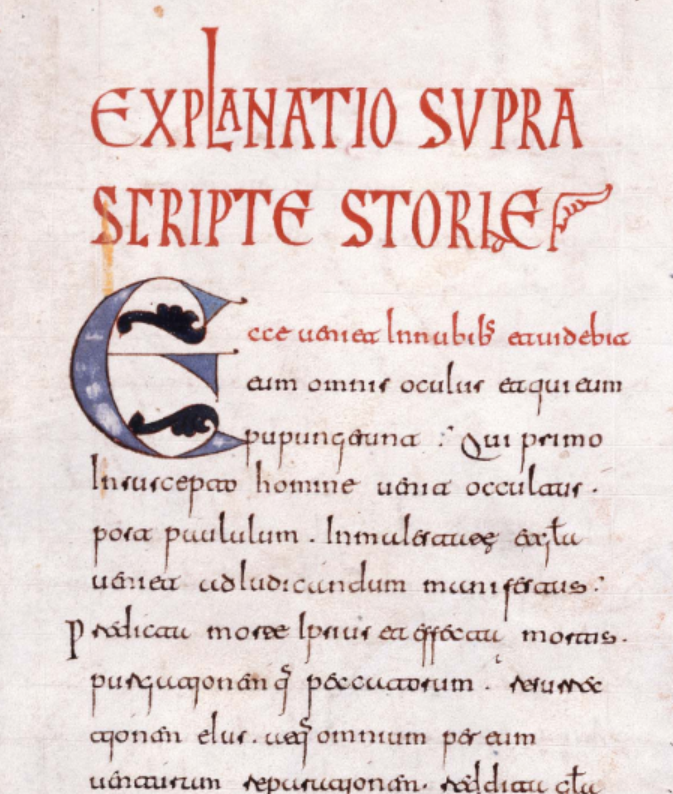 EXPLANATIO SVPRA
SCRIPTE STORIE
Ecce ueniet Innubibs etuidebit
eum omnis oculus etquieum
pupungerunt : Qui primo
Insuscepto homine uenit occultus .
post paululum .
ueniet adIudicandum manifestus :
Predicata morte Ipsius et effectu mortis .
purgationemq peccatorum . resurrec
tionem eIus . atq omnium per eum
uenturum reparationem .